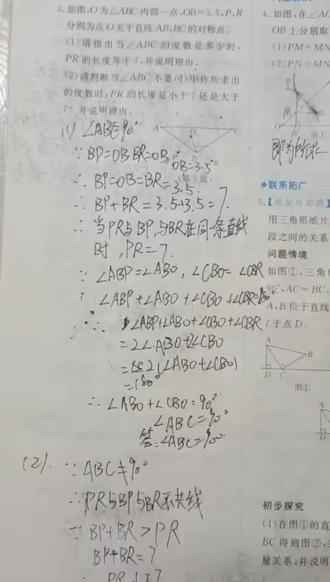 3.如图,O为△ABC内部一点,OB=3.5,P,R
分别为点O关于直线AB,BC的对称点.
(1)请指出当∠ABC的度数是多少时,
PR的长度等于7,并说明理由.
(2)请判断当∠ABC不是(1)中你所求出
的度数时,PR的长度是小于7还是大于
7?并说明理由.
(1) ∠ABC=90°
∵ BP=OB BR=OB,
OB=3.5
∴ BP=OB=BR=3.5.
∴ BP+BR=3.5+3.5=7.
∴ 当PR与BP与BR在同一条直线
时,PR=7.
∵ ∠ABP=∠ABO,∠CBO=∠CBR
∠ABP+∠ABO+∠CBO+∠CBR=180°
∴ ∠ABP+∠ABO+∠CBO+∠CBR
=2∠ABO+2∠CBO
=2(∠ABO+∠CBO)
=180°
∴ ∠ABO+∠CBO=90°
∠ABC=90°
答:∠ABC=90°
(2). ∵ ABC≠90°
∴ PR与BP与BR不共线
∵ BP+BR>PR
BP+BR=7
4.如图,在∠AC
OB上分别取
(1)PM+MN
(2)PN+MN
联系拓广
5.【综合与实践】
用三角形纸片
段之间的关系
问题情境
如图①,三角
90°,AC=BC,
A,B位于直线
l于点D.
A
B
D C
图①
初步探究
(1)在图①的直
BC得到图②,
量关系,并说明